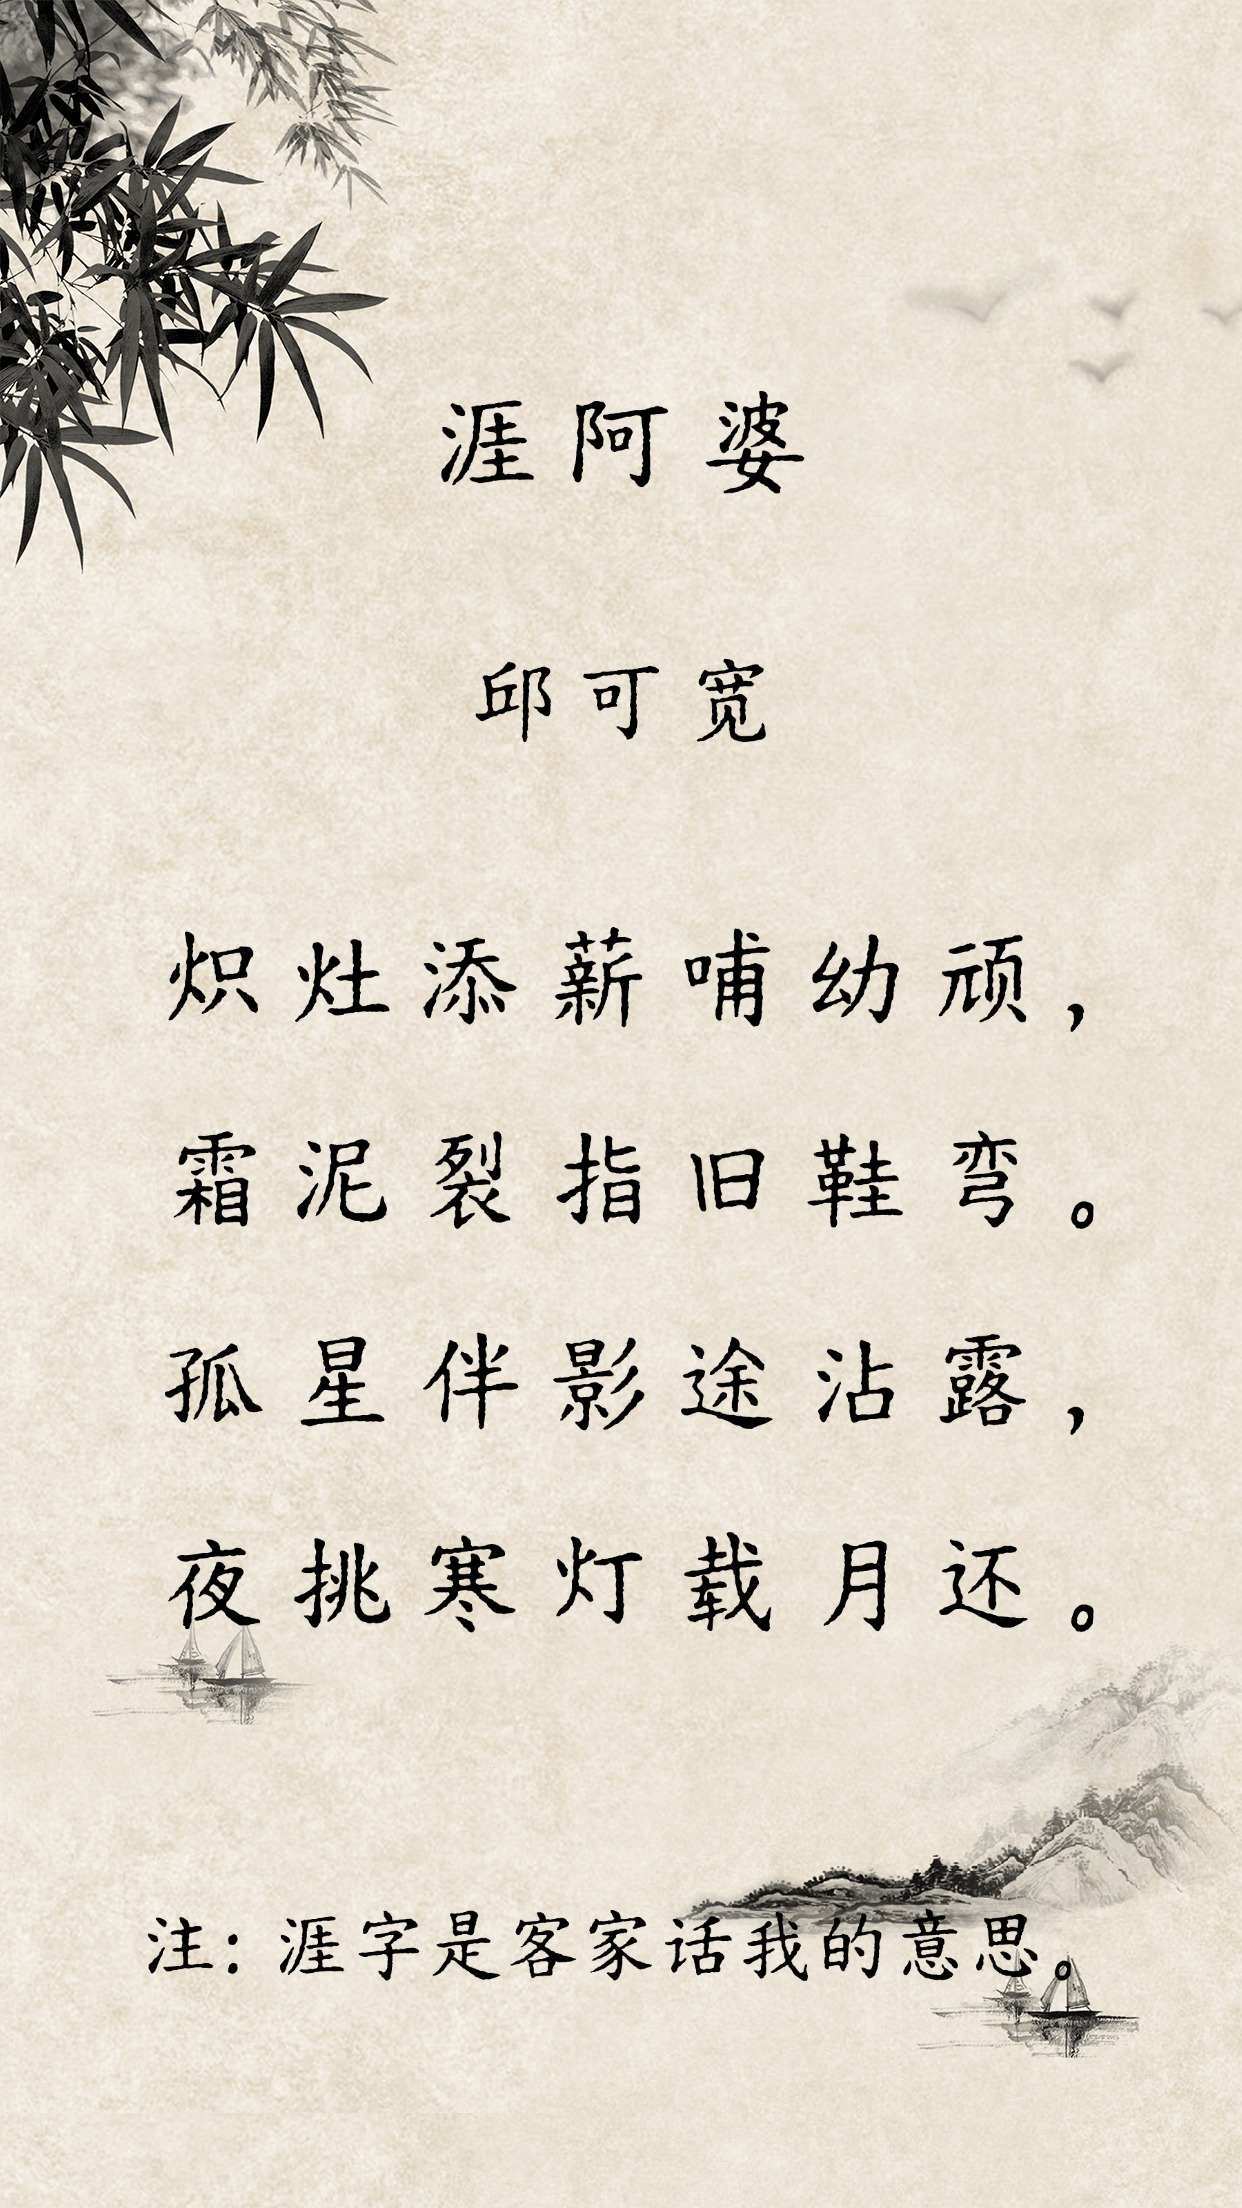 涯阿婆
邱可宽
炽灶添薪哺幼顽，
霜泥裂指旧鞋弯。
孤星伴影途沾露，
夜挑寒灯载月还。
注：涯字是客家话我的意思。